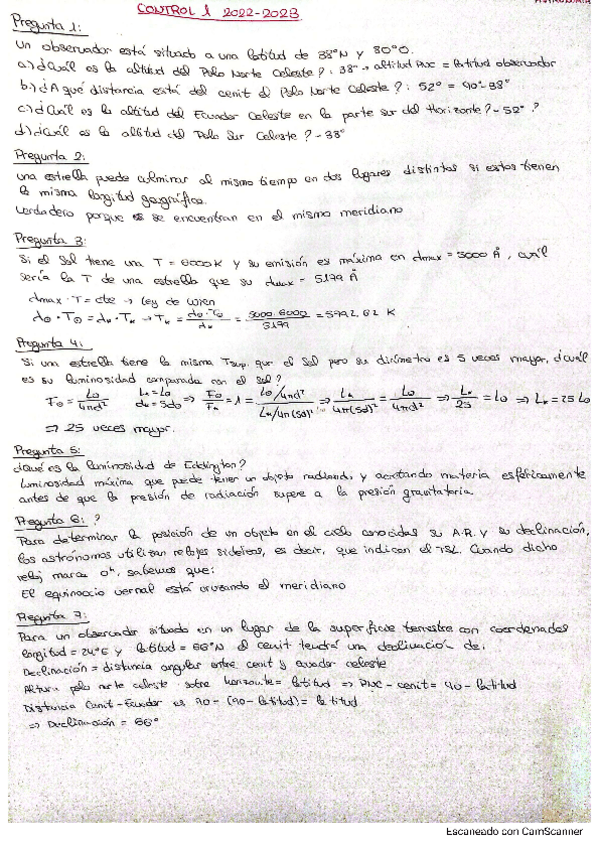 CONTROL 1 2022-2023
ASTRONOMIA
Pregunta 1:
Un observador está situado a una latitud de 38°N y 80°O.
a) ¿Cuál es la altitud del Polo Norte Celeste?: 38° → altitud PNC = latitud observador
b) ¿A qué distancia está del cenit el Polo Norte Celeste?: 52° = 90°-38°
c) ¿Cuál es la altitud del Ecuador Celeste en la parte sur del Horizonte? - 52° ?
d) ¿Cuál es la altitud del Polo Sur Celeste? - 38°
Pregunta 2:
Una estrella puede culminar al mismo tiempo en dos lugares distintos si estos tienen
la misma longitud geográfica.
Verdadero porque se encuentran en el mismo meridiano
Pregunta 3:
Si el Sol tiene una T = 6000K y su emisión es máxima en dmax = 5000 Å, cuál
sería la T de una estrella que su dmax = 5179 Å
dmax · T = cte → Ley de Wien
d⊙ · T⊙ = d* · T* → T* = d⊙·T⊙/d* = 5000·6000/5179 = 5792.62 K
Pregunta 4:
Si una estrella tiene la misma Tsup. que el Sol pero su diámetro es 5 veces mayor, ¿cuál
es su luminosidad comparada con el Sol?
F⊙ = L⊙/4πd² L*=L⊙ d*=5d⊙ ⇒ F⊙/F* = 1 = L⊙/4πd² / L*/4π(5d)² ⇒ L*/4π(5d)² = L⊙/4πd² ⇒ L*/25 = L⊙ ⇒ L* = 25 L⊙
⇒ 25 veces mayor.
Pregunta 5:
¿Qué es la luminosidad de Eddington?
Luminosidad máxima que puede tener un objeto radiando y acretando materia esféricamente
antes de que la presión de radiación supere a la presión gravitatoria.
Pregunta 6: ?
Para determinar la posición de un objeto en el cielo conocidas su A.R. y su declinación,
los astrónomos utilizan relojes sidéreos, es decir, que indican el TSL. Cuando dicho
reloj marca 0ʰ, sabemos que:
El equinoccio vernal está cruzando el meridiano
Pregunta 7:
Para un observador situado en un lugar de la superficie terrestre con coordenadas
longitud = 24°E y latitud = 66°N el cenit tendrá una declinación de:
Declinación = distancia angular entre cenit y ecuador celeste
Altura polo norte celeste sobre horizonte = latitud ⇒ PNC - cenit = 90 - latitud
Distancia Cenit-Ecuador es 90 - (90-latitud) = latitud
⇒ Declinación = 66°
Escaneado con CamScanner